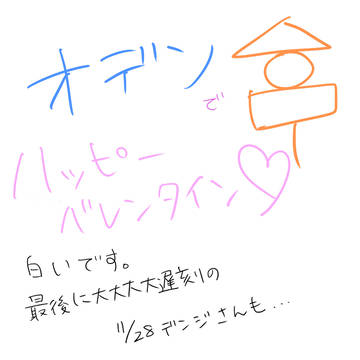 オデンで
ハッピー
バレンタイン♡
白いです。
最後に大大大大遅刻の
11/28 デンジさんも…